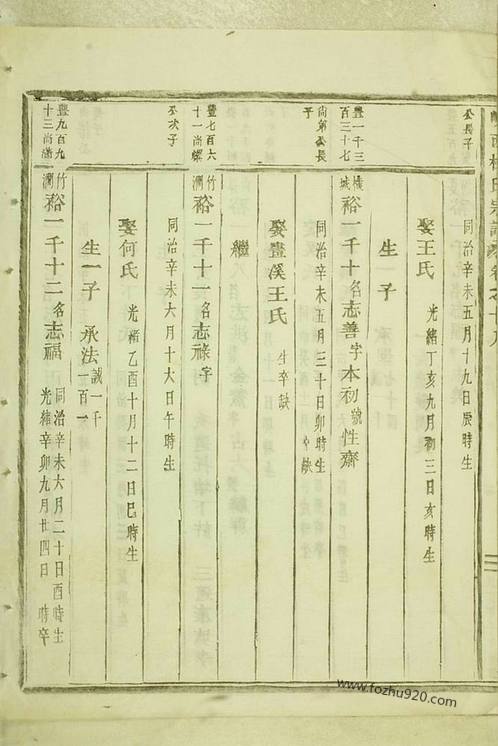 公長子
同治辛未五月十九日辰時生
娶王氏
光緒丁亥九月初三日亥時生
生一子
豐一千三
百三十七
尚第公長
子
橫城
裕一千十名志善字本初號性齋
同治辛未五月三十日卯時生
娶豐溪王氏
生卒缺
繼
豐七百六
十一尚
公次子
竹澗
裕一千十一名志祿字
同治辛未六月十六日午時生
娶何氏
光緒乙酉十月十二日巳時生
生一子
承法誠一千
一百一
豐九百九
十三尚
竹澗
裕一千十二名志福
同治辛未六月二十日酉時生
光緒辛卯九月廿四日時卒
www.fozhu920.com